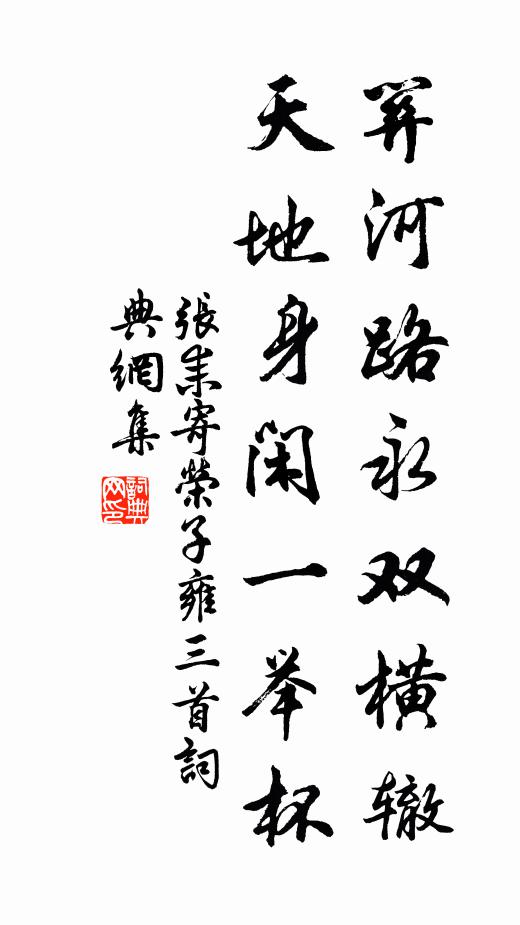 关河路永双横辙
天地身闲一举杯
張耒寄榮子雍三首詞
典網集
詞典
网印